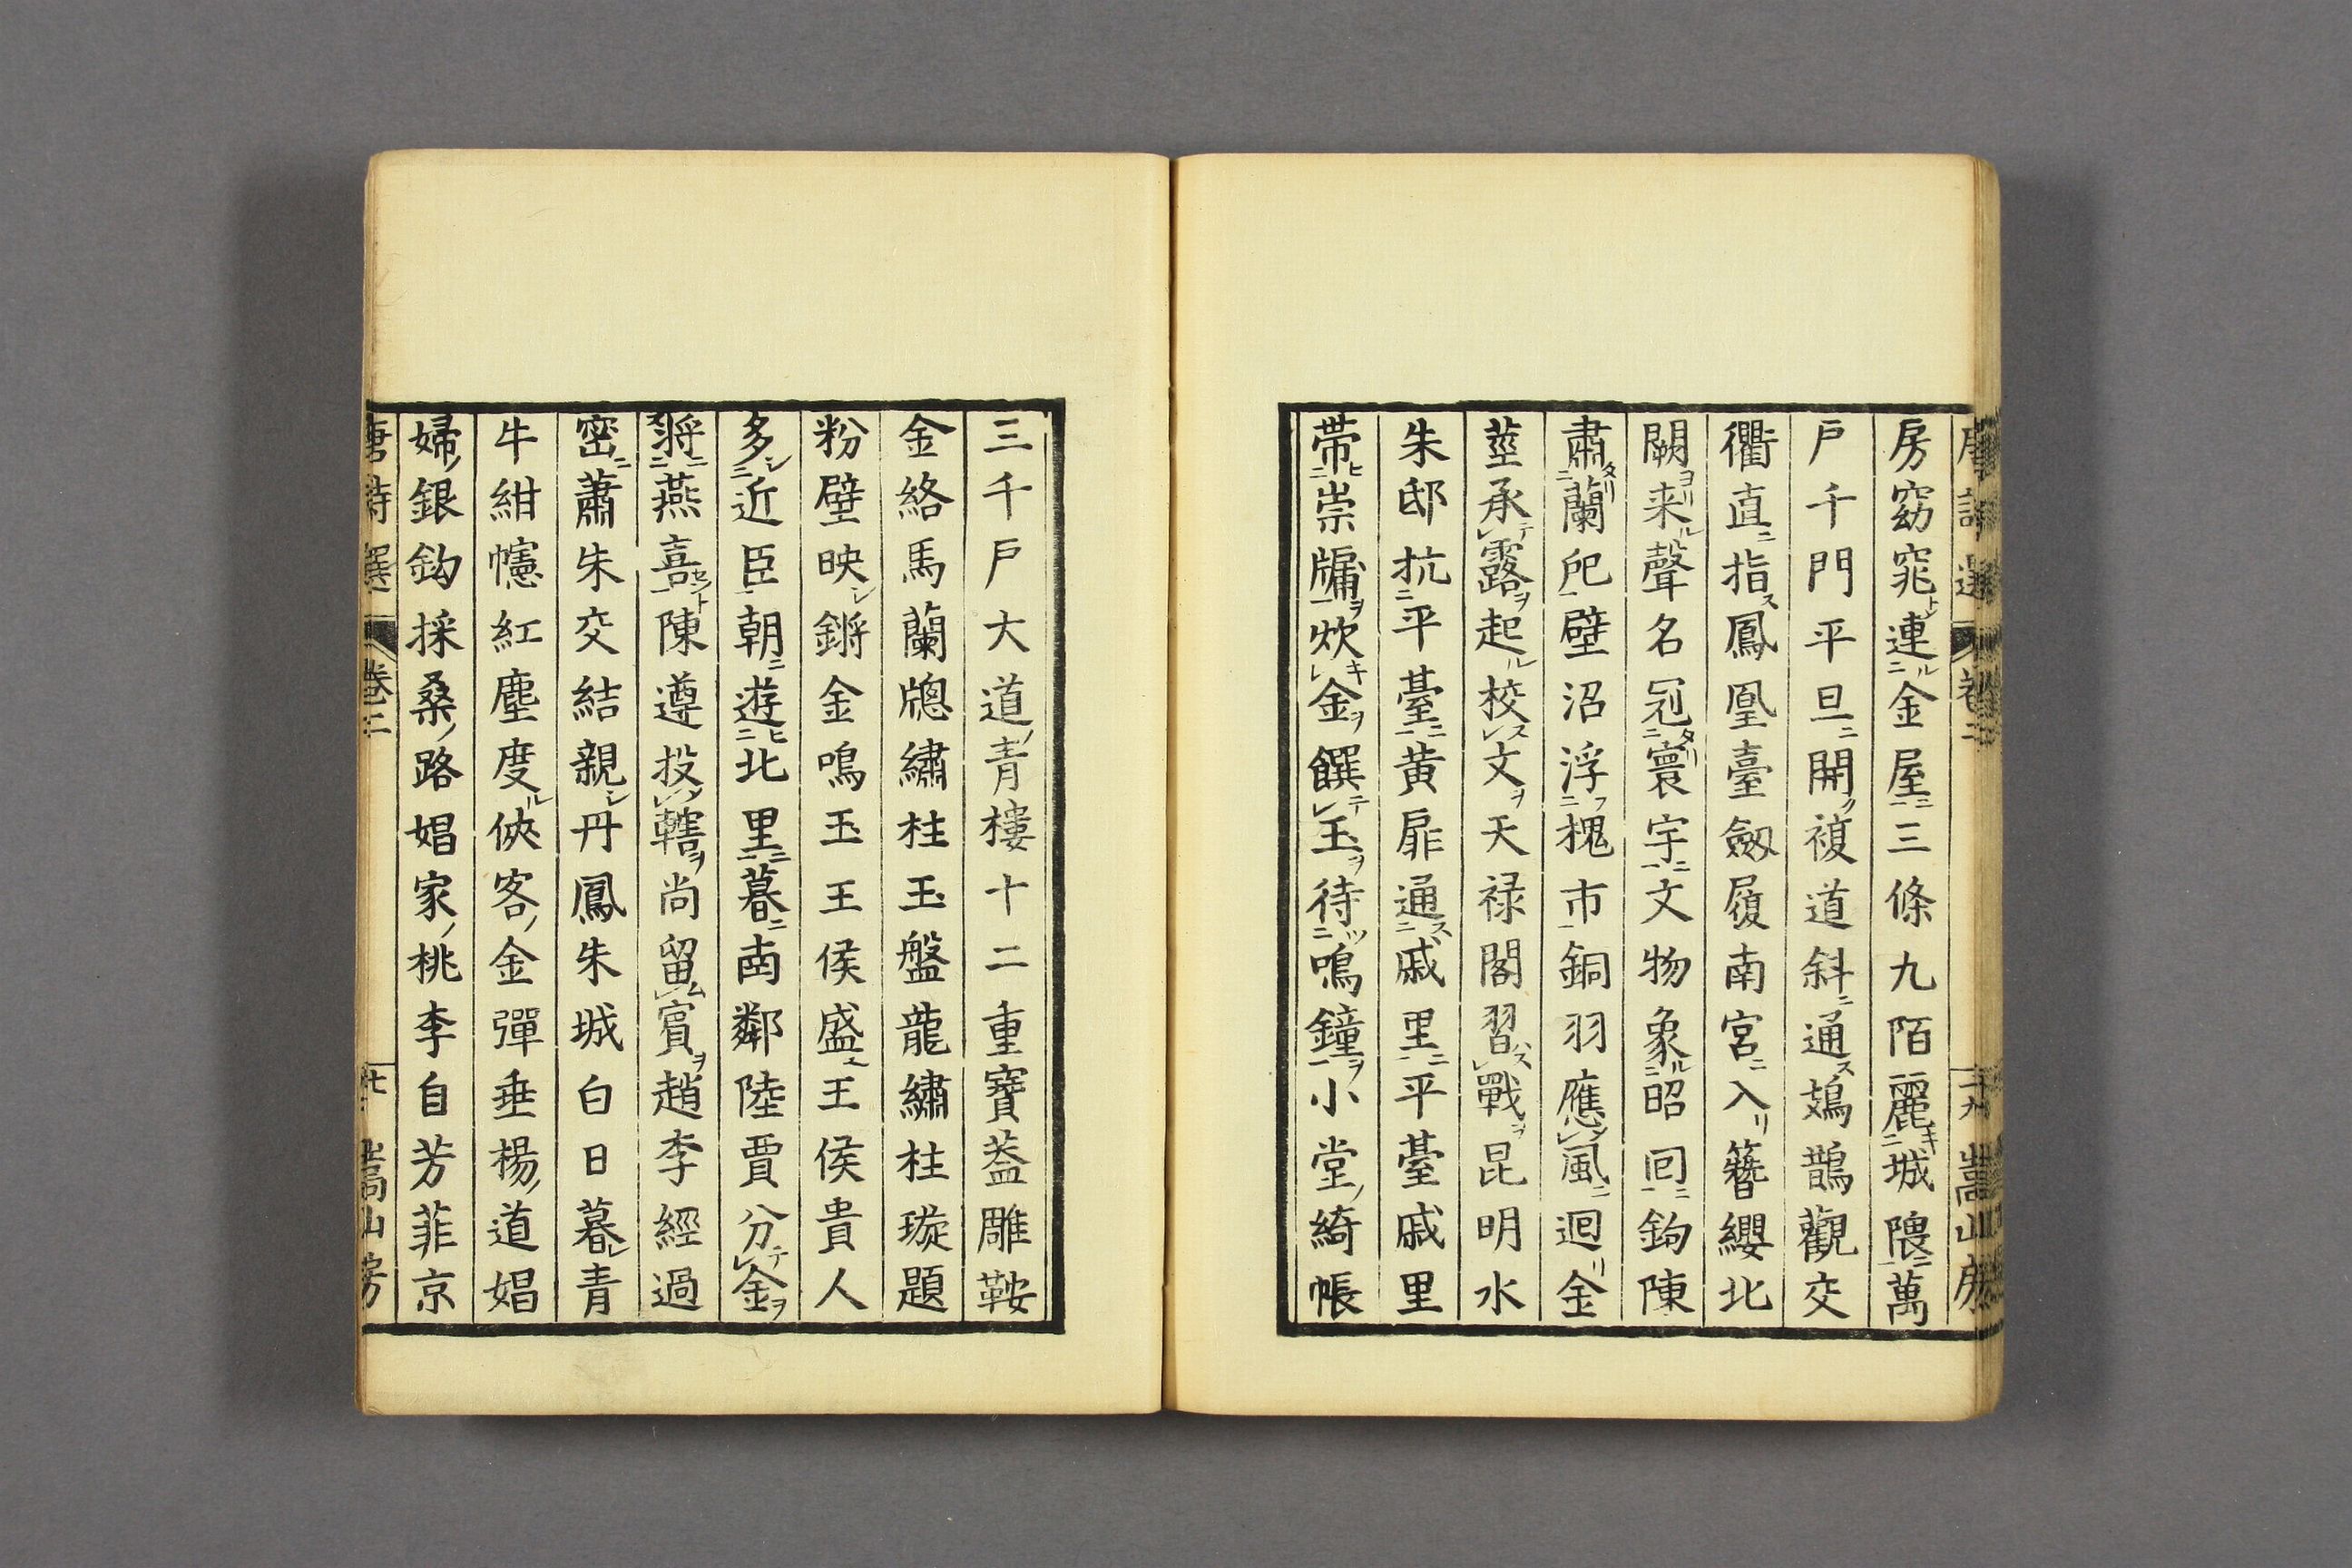 唐詩選 卷二 嵩山房
房窈窕連金屋三條九陌麗城隈萬
戶千門平旦開複道斜通鳷鵲觀交
衢直指鳳凰臺劔履南宮入簪纓北
闕来聲名冠寰宇文物象昭回鉤陳
肅蘭戺壁沼浮槐市銅羽應風迴金
莖承露起校文天禄閣習戰昆明水
朱邸抗平臺黄扉通戚里平臺戚里
帯崇墉炊金饌玉待鳴鐘小堂綺帳
三千戶大道青樓十二重寶蓋雕鞍
金絡馬蘭牕繡柱玉盤龍繡柱璇題
粉壁映鏘金鳴玉王侯盛王侯貴人
多近臣朝遊北里暮南鄰陸賈分金
將燕喜陳遵投轄尚留賓趙李經過
密蕭朱交結親丹鳳朱城白日暮青
牛紺幰紅塵度俠客金彈垂楊道娼
婦銀鉤採桑路娼家桃李自芳菲京
唐詩選 卷二 嵩山房